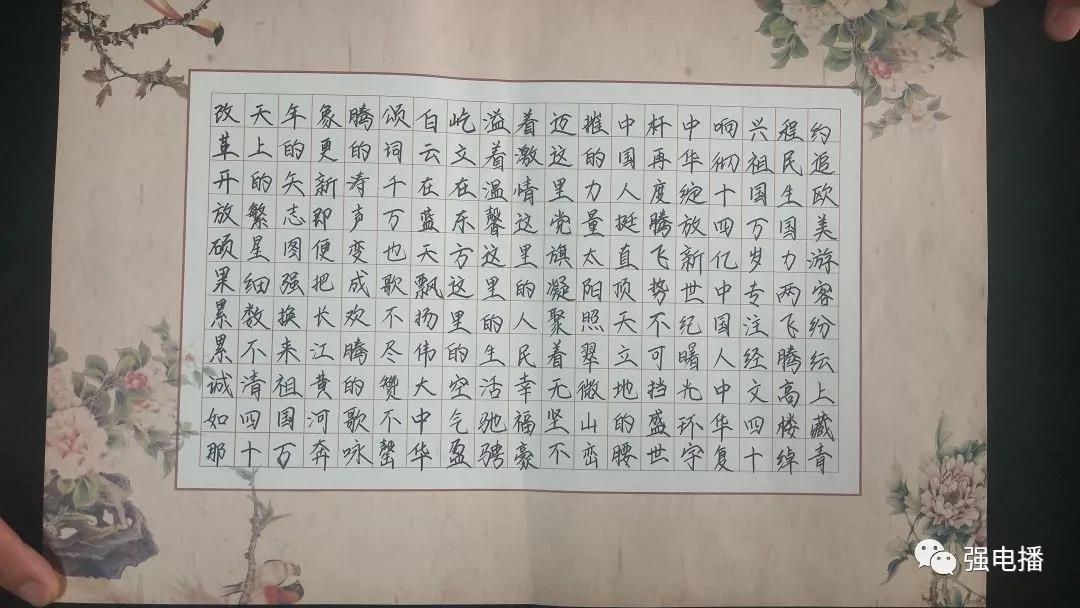 改革开放硕果累累诚如那
天上的繁星细数不清四十
年的矢志图强换来祖国万
象更新即便把长江黄河奔
腾的涛声变成欢腾的歌咏
颂词千万也歌不尽赞不罄
白云在蓝天飘扬伟大中华
屹文在东方这里的空气盈
溢着温馨这里的生活驰骋
着激情这里的人民幸福豪
迈这里党旗凝聚着无坚不
摧的力量太阳照翠微山峦
中国人挺直顶天立地的腰
杆再度腾飞势不可挡盛世
中华绽放新世纪曙光环宇
响彻十四亿中国人中华复
兴祖国万岁专注经文四十
程民生国力两飞腾高楼绰
约追欧美游客纷纭上藏青
强电播